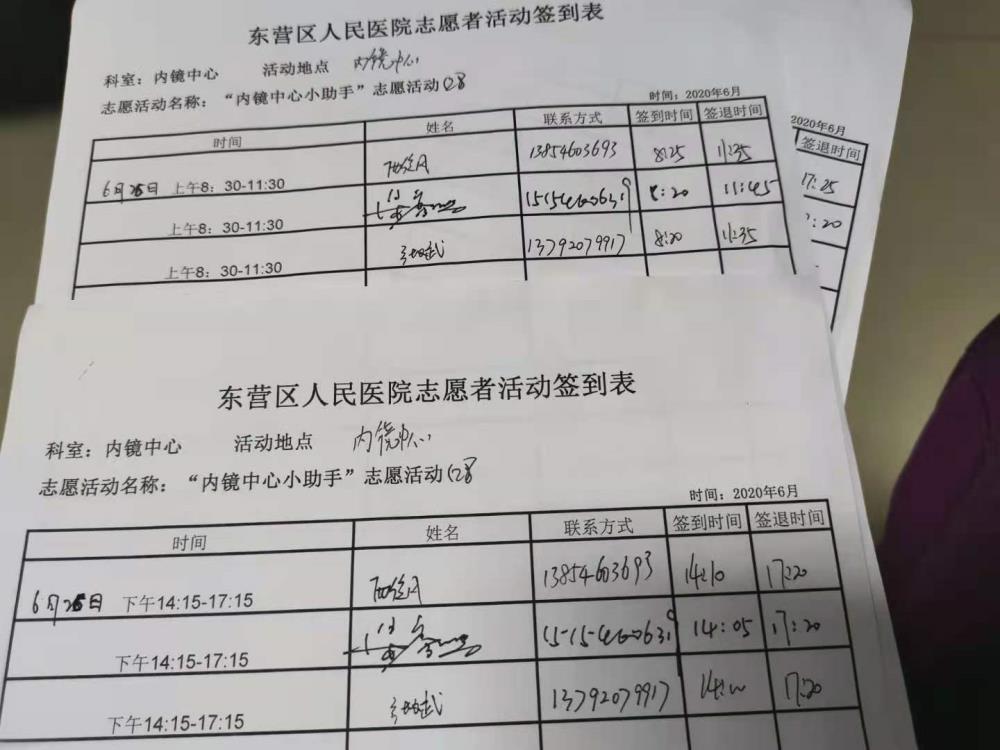 东营区人民医院志愿者活动签到表
科室：内镜中心 活动地点 内镜中心
志愿活动名称：“内镜中心小助手”志愿活动
时间：2020年6月
时间 姓名 联系方式 签到时间 签退时间
6月25日 上午8：30-11:30 13854603693 8:25 11:35
上午8：30-11:30 15154660639 8:20 11:45
上午8：30-11:30 13792079917 8:20 11:35
2020年6月
签退时间
17:25
:20
东营区人民医院志愿者活动签到表
科室：内镜中心 活动地点 内镜中心
志愿活动名称：“内镜中心小助手”志愿活动
时间：2020年6月
时间 姓名 联系方式 签到时间 签退时间
6月25日 下午14:15-17:15 13854603693 14:10 17:20
下午14:15-17:15 14:05 17:20
下午14:15-17:15 13792079917 17:20